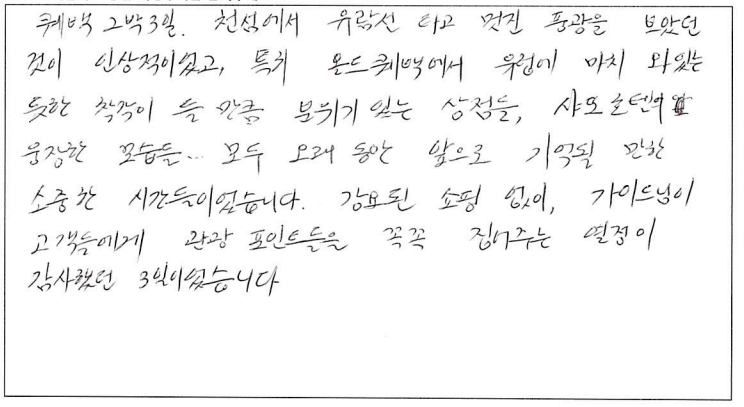 퀘백 2박3일. 천섬에서 유람선 타고 멋진 풍광을 보았던
것이 인상적이었고, 특히 올드퀘백에서 유럽에 마치 와있는
듯한 착각이 들 만큼 분위기 있는 상점들, 샤또 호텐의
웅장한 모습들... 모두 오래 동안 앞으로 기억될 만한
소중한 시간들이었습니다. 강요된 쇼핑 없이, 가이드님이
고객들에게 관광 포인트들을 꼭꼭 집어주는 열정이
감사했던 3일이었습니다